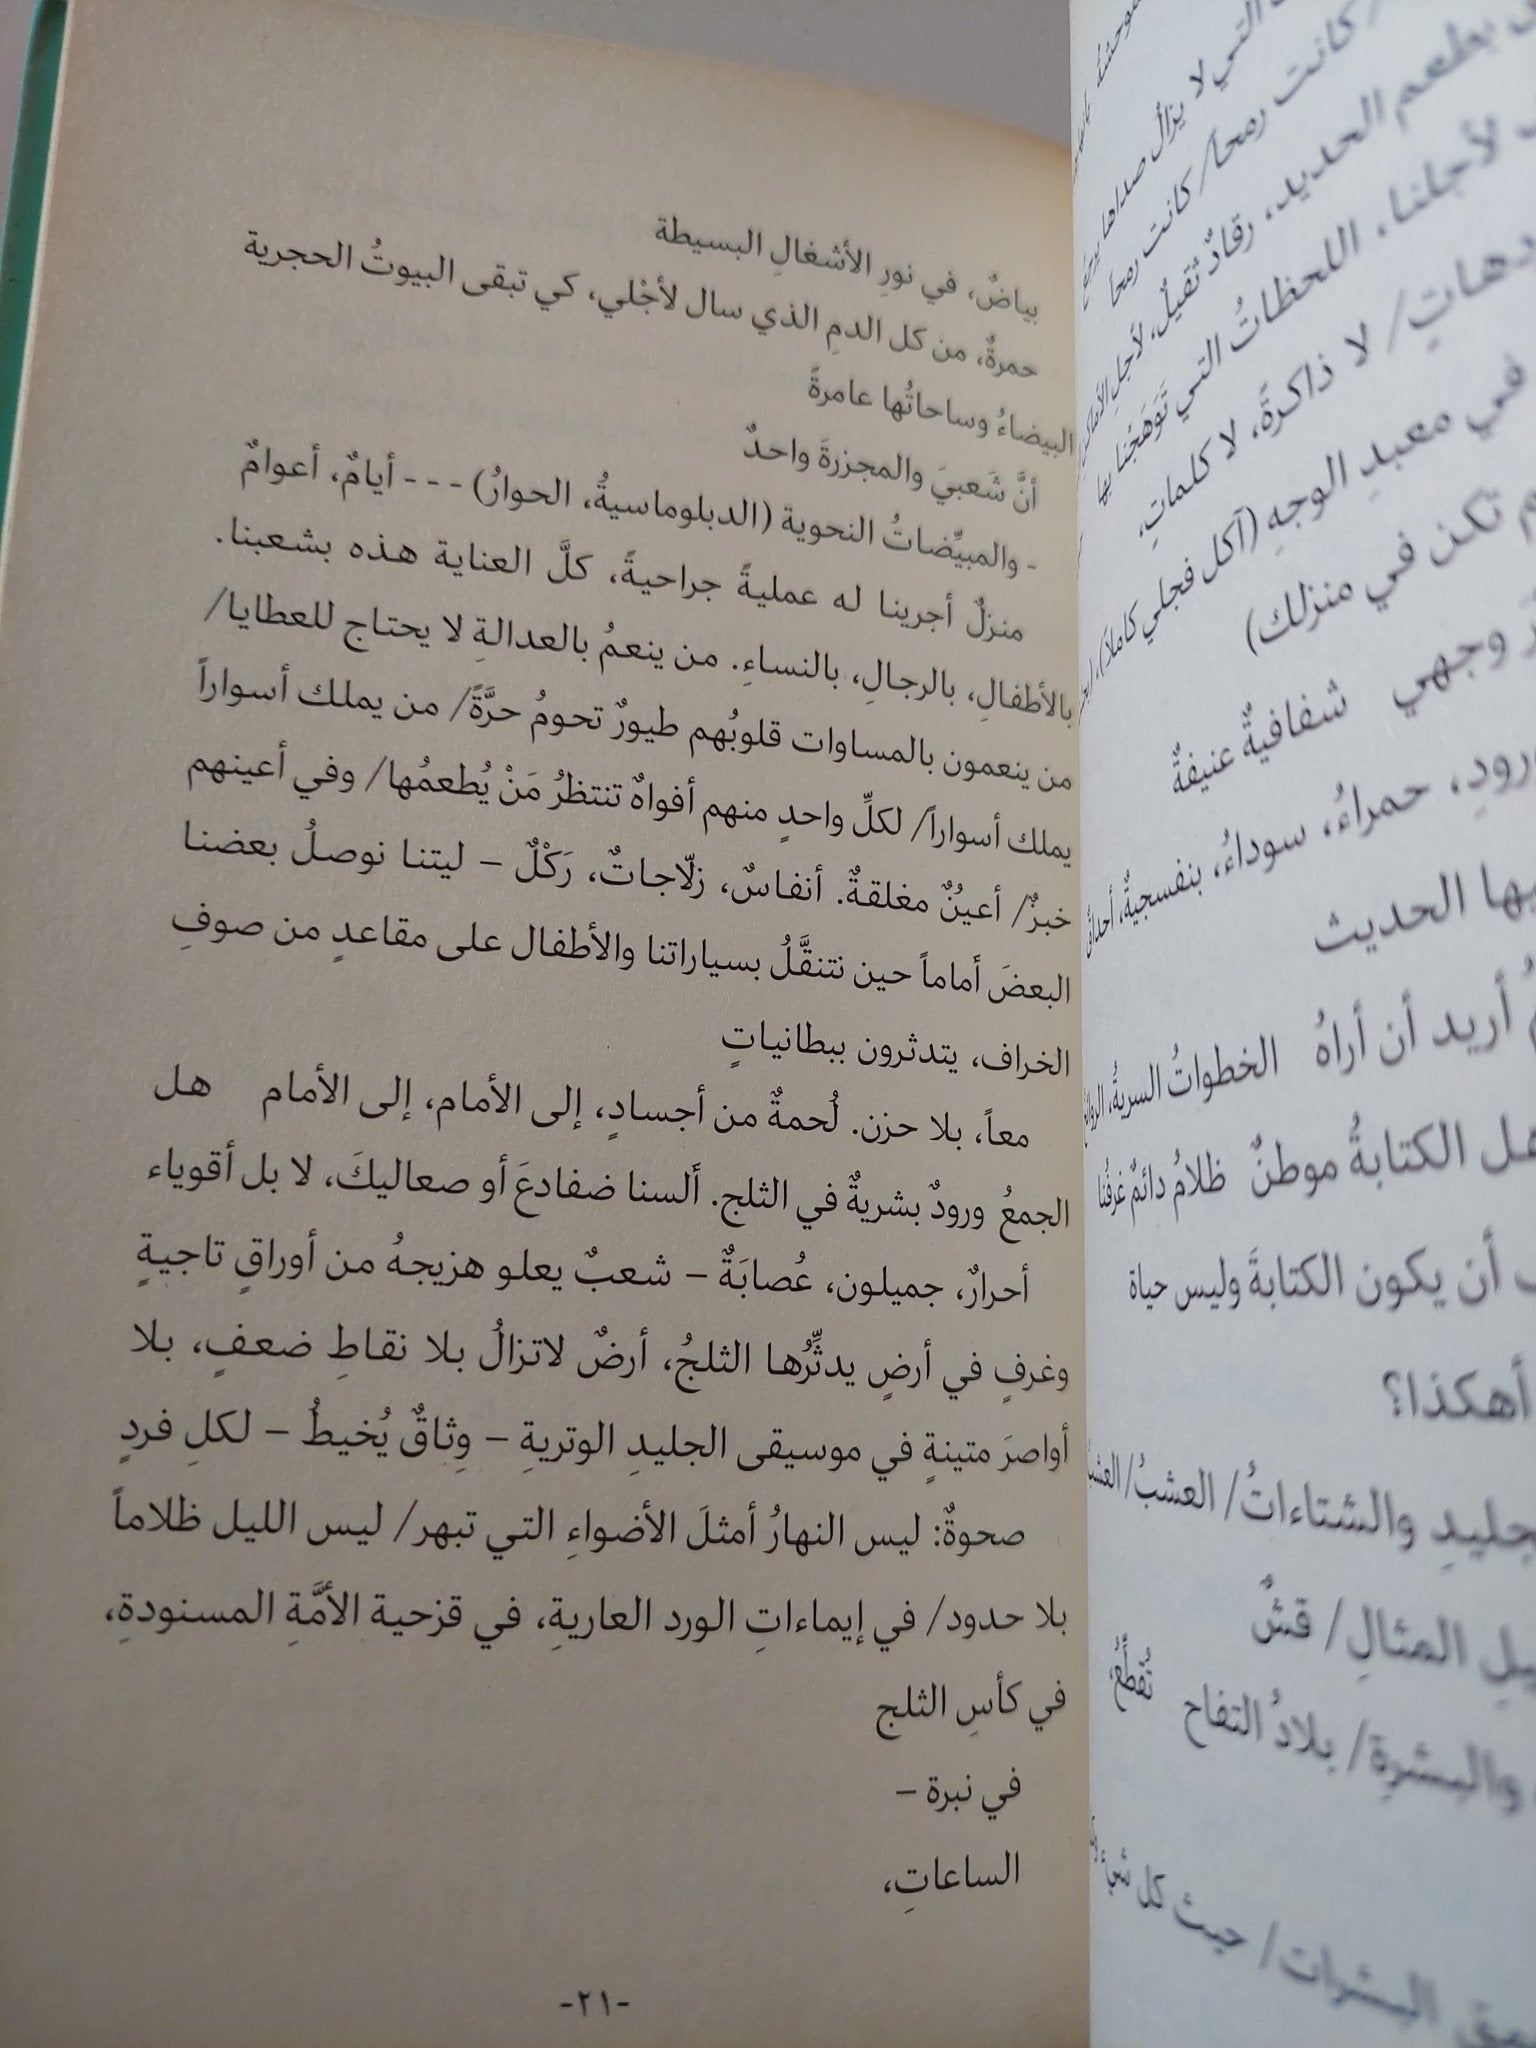 بياضٌ، في نورِ الأشغالِ البسيطة
حمرةٌ، من كل الدمِ الذي سال لأجْلي، كي تبقى البيوتُ الحجرية
البيضاءُ وساحاتُها عامرةً
أنَّ شَعبيَ والمجزرةَ واحدٌ
- والمبيِّضاتُ النحوية (الدبلوماسيةُ، الحوارُ) - - - أيامٌ، أعوامٌ
منزلٌ أجرينا له عمليةً جراحيةً، كلَّ العناية هذه بشعبنا.
بالأطفالِ، بالرجالِ، بالنساءِ. من ينعمُ بالعدالةِ لا يحتاج للعطايا/
من ينعمون بالمساوات قلوبُهم طيورٌ تحومُ حرَّةً/ من يملك أسواراً
يملك أسواراً/ لكلِّ واحدٍ منهم أفواهٌ تنتظرُ مَنْ يُطعمُها/ وفي أعينهم
خبزٌ/ أعيُنٌ مغلقةٌ. أنفاسٌ، زلّاجاتٌ، رَكْلٌ – ليتنا نوصلُ بعضنا
البعضَ أماماً حين نتنقَّلُ بسياراتنا والأطفال على مقاعدٍ من صوفِ
الخراف، يتدثرون ببطانياتٍ
معاً، بلا حزن. لُحمةٌ من أجسادٍ، إلى الأمام، إلى الأمام هل
الجمعُ ورودٌ بشريةٌ في الثلج. ألسنا ضفادعَ أو صعاليكَ، لا بل أقوياء
أحرارٌ، جميلون، عُصابَةٌ – شعبٌ يعلو هزيجهُ من أوراقٍ تاجيةٍ
وغرفٍ في أرضٍ يدثِّرُها الثلجُ، أرضٌ لاتزالُ بلا نقاطِ ضعفٍ، بلا
أواصرَ متينةٍ في موسيقى الجليدِ الوتريةِ – وِثاقٌ يُخيطُ – لكلِ فردٍ
صحوةٌ: ليس النهارُ أمثلَ الأضواءِ التي تبهر/ ليس الليل ظلاماً
بلا حدود/ في إيماءاتِ الورد العاريةِ، في قزحية الأمَّةِ المسنودةِ،
في كأسِ الثلج
في نبرة –
الساعاتِ،
-٢١-
التي لا يزالُ صداها
كانت رمحاً/ كانت رمحاً
يطعم الحديد، رقادٌ ثقيلٌ، لأجلِ
لأجلنا، اللحظاتُ التي تَوَهَجْنا بها
لا ذاكرةً، لا كلماتٍ،
في معبدِ الوجهِ (آكل فجلي كاملاً)،
تكن في منزلك)
وجهي شفافيةٌ عنيفةٌ
حمراءُ، سوداءُ، بنفسجيةٌ،
بها الحديث
أريد أن أراهُ الخطواتُ السريةُ،
هل الكتابةُ موطنٌ ظلامُ دائمٌ غرفُنا
أن يكون الكتابةَ وليس حياة
أهكذا؟
والشتاءاتُ/ العشبُ/
المثالِ/ قشٌ
والبشرةِ/ بلادُ التفاح تُقطِّعُ،
حيث كل